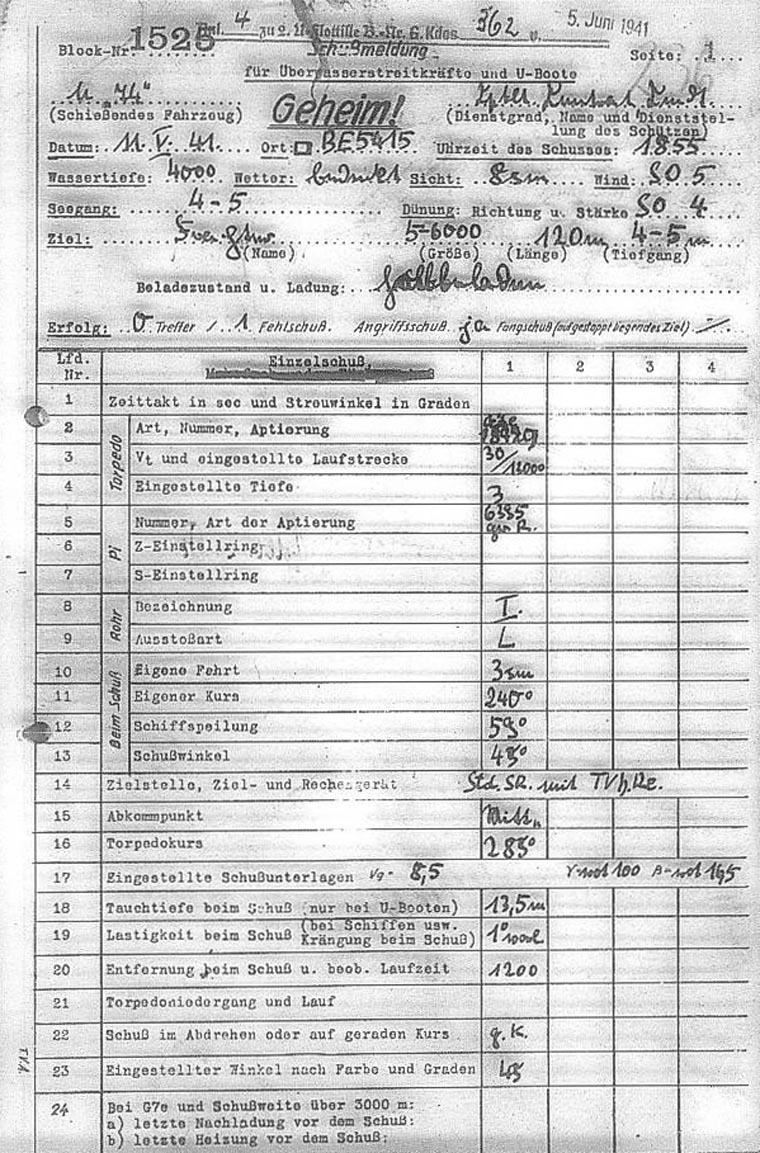 4 zu 2. U-Flottille B.-Nr. G.Kdos 362 v. 5. Juni 1941
Block-Nr. 1525 Schußmeldung Seite: 1
für Überwasserstreitkräfte und U-Boote
U "74" Geheim! Kptlt.
(Schießendes Fahrzeug) (Dienstgrad, Name und Dienststel-
lung des Schützen)
Datum: 11. V. 41. Ort: BE5415 Uhrzeit des Schusses: 1855
Wassertiefe: 4000 Wetter: bedeckt Sicht: 8sm Wind: SO 5
Seegang: 4-5 Dünung: Richtung u. Stärke SO 4
Ziel: 5-6000 120m 4-5m
(Name) (Größe) (Länge) (Tiefgang)
Beladezustand u. Ladung: halbbeladen
Erfolg: 0 Treffer / 1 Fehlschuß. Angriffsschuß ja Fangschuß (aufgestoppt liegendes Ziel)
Lfd. Nr. Einzelschuß, 1 2 3 4
1 Zeittakt in sec und Streuwinkel in Graden
Torpedo
2 Art, Nummer, Aptierung
3 Vt und eingestellte Laufstrecke 30/12000
4 Eingestellte Tiefe 3
Pi
5 Nummer, Art der Aptierung 6385
6 Z-Einstellring
7 S-Einstellring
Rohr
8 Bezeichnung I.
9 Ausstoßart L
Beim Schuß
10 Eigene Fahrt 3sm
11 Eigener Kurs 240°
12 Schiffspeilung 59°
13 Schußwinkel 45°
14 Zielstelle, Ziel- und Rechengerät Std. SR. mit TVh.Re.
15 Abkommpunkt Mitte
16 Torpedokurs 285°
17 Eingestellte Schußunterlagen Vg= 8,5 γ-rot 100
18 Tauchtiefe beim Schuß (nur bei U-Booten) 13,5m
19 Lastigkeit beim Schuß (bei Schiffen usw. Krängung beim Schuß) 1°
20 Entfernung beim Schuß u. beob. Laufzeit 1200
21 Torpedoniedergang und Lauf
22 Schuß im Abdrehen oder auf geraden Kurs g. K.
23 Eingestellter Winkel nach Farbe und Graden 45
24 Bei G7e und Schußweite über 3000 m:
a) letzte Nachladung vor dem Schuß:
b) letzte Heizung vor dem Schuß: